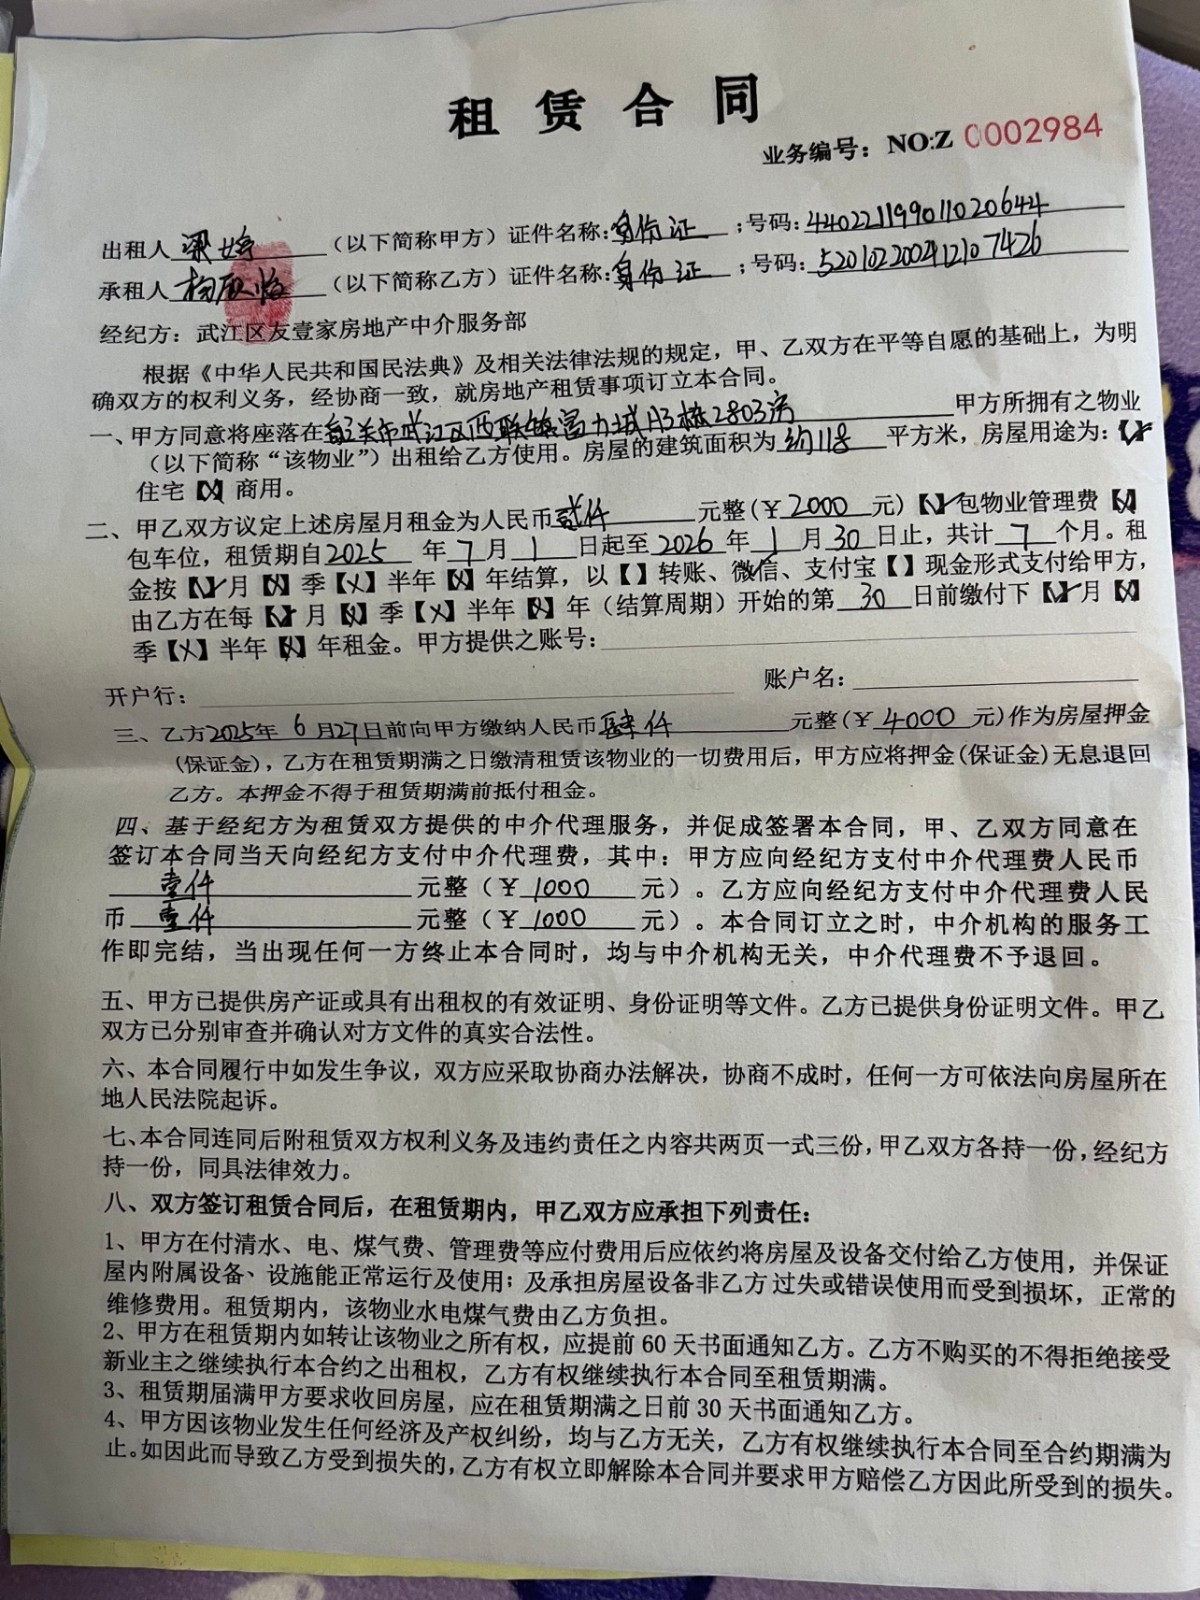 租赁合同
业务编号：NO:Z 0002984
出租人梁婷（以下简称甲方）证件名称：身份证；号码：440221199011020644
承租人杨欣怡（以下简称乙方）证件名称：身份证；号码：520102200412107426
经纪方：武江区友壹家房地产中介服务部
根据《中华人民共和国民法典》及相关法律法规的规定，甲、乙双方在平等自愿的基础上，为明
确双方的权利义务，经协商一致，就房地产租赁事项订立本合同。
一、甲方同意将座落在韶关市武江区西联镇富力城A3栋2803房甲方所拥有之物业
（以下简称“该物业”）出租给乙方使用。房屋的建筑面积为约118平方米，房屋用途为：【✓】
住宅【X】商用。
二、甲乙双方议定上述房屋月租金为人民币贰仟元整(￥2000元)【✓】包物业管理费【X】
包车位，租赁期自2025年7月1日起至2026年1月30日止，共计7个月。租
金按【✓】月【X】季【X】半年【X】年结算，以【 】转账、微信、支付宝【 】现金形式支付给甲方，
由乙方在每【✓】月【X】季【X】半年【X】年（结算周期）开始的第30日前缴付下【✓】月【X】
季【X】半年【X】年租金。甲方提供之账号：
开户行： 账户名：
三、乙方2025年6月27日前向甲方缴纳人民币肆仟元整(￥4000元)作为房屋押金
(保证金)，乙方在租赁期满之日缴清租赁该物业的一切费用后，甲方应将押金(保证金)无息退回
乙方。本押金不得于租赁期满前抵付租金。
四、基于经纪方为租赁双方提供的中介代理服务，并促成签署本合同，甲、乙双方同意在
签订本合同当天向经纪方支付中介代理费，其中：甲方应向经纪方支付中介代理费人民币
壹仟元整（￥1000元）。乙方应向经纪方支付中介代理费人民
币壹仟元整（￥1000元）。本合同订立之时，中介机构的服务工
作即完结，当出现任何一方终止本合同时，均与中介机构无关，中介代理费不予退回。
五、甲方已提供房产证或具有出租权的有效证明、身份证明等文件。乙方已提供身份证明文件。甲乙
双方已分别审查并确认对方文件的真实合法性。
六、本合同履行中如发生争议，双方应采取协商办法解决，协商不成时，任何一方可依法向房屋所在
地人民法院起诉。
七、本合同连同后附租赁双方权利义务及违约责任之内容共两页一式三份，甲乙双方各持一份，经纪方
持一份，同具法律效力。
八、双方签订租赁合同后，在租赁期内，甲乙双方应承担下列责任：
1、甲方在付清水、电、煤气费、管理费等应付费用后应依约将房屋及设备交付给乙方使用，并保证
屋内附属设备、设施能正常运行及使用；及承担房屋设备非乙方过失或错误使用而受到损坏，正常的
维修费用。租赁期内，该物业水电煤气费由乙方负担。
2、甲方在租赁期内如转让该物业之所有权，应提前60天书面通知乙方。乙方不购买的不得拒绝接受
新业主之继续执行本合约之出租权，乙方有权继续执行本合同至租赁期满。
3、租赁期届满甲方要求收回房屋，应在租赁期满之日前30天书面通知乙方。
4、甲方因该物业发生任何经济及产权纠纷，均与乙方无关，乙方有权继续执行本合同至合约期满为
止。如因此而导致乙方受到损失的，乙方有权立即解除本合同并要求甲方赔偿乙方因此所受到的损失。